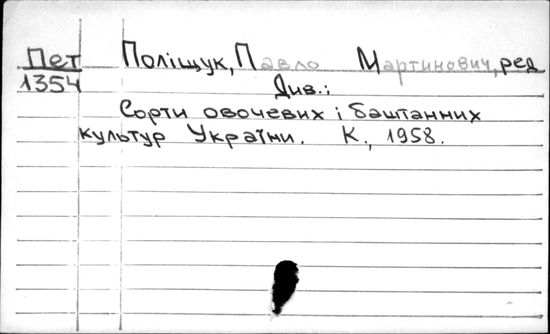 Пет Поліщук, Павло Мартинович, ред
1354 Див.:
Сорти овочевих і баштанних
культур України. К., 1958.